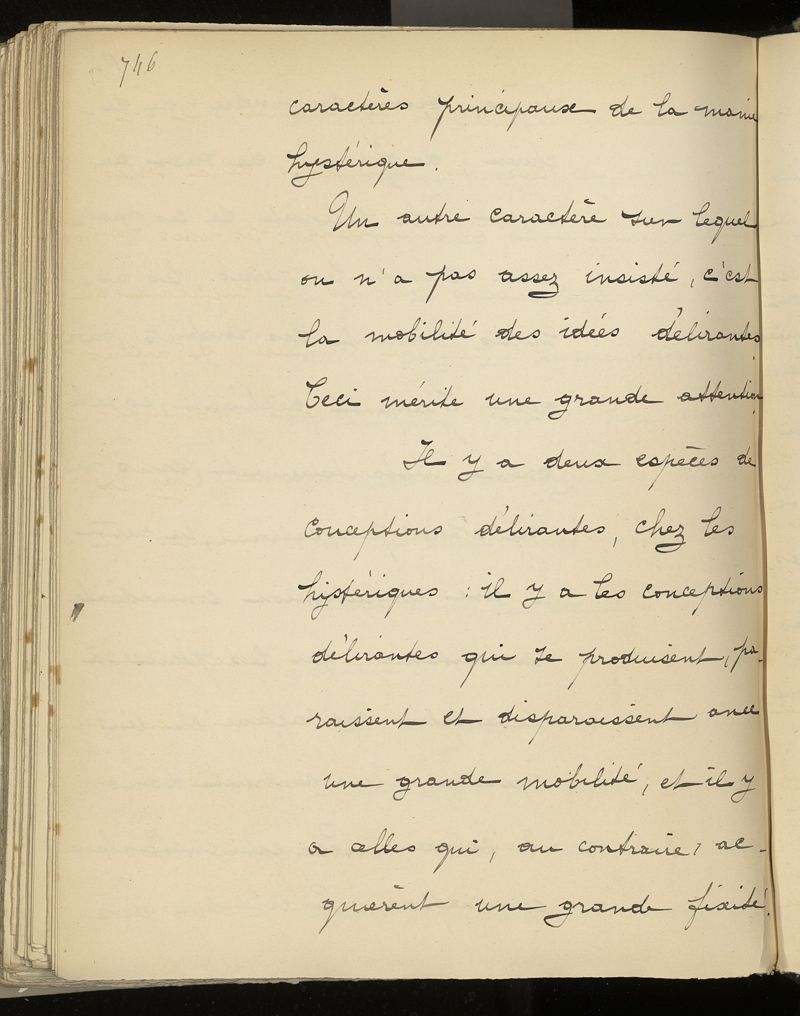 746
caractères principaux de la manie
hystérique.
Un autre caractère sur lequel
on n'a pas assez insisté, c'est
la mobilité des idées délirantes
Ceci mérite une grande attention
Il y a deux espèces de
conceptions délirantes, chez les
hystériques : il y a les conceptions
délirantes qui se produisent, pa-
raissent et disparaissent avec
une grande mobilité, et il y
a celles qui, au contraire, ac-
quièrent une grande fixité.